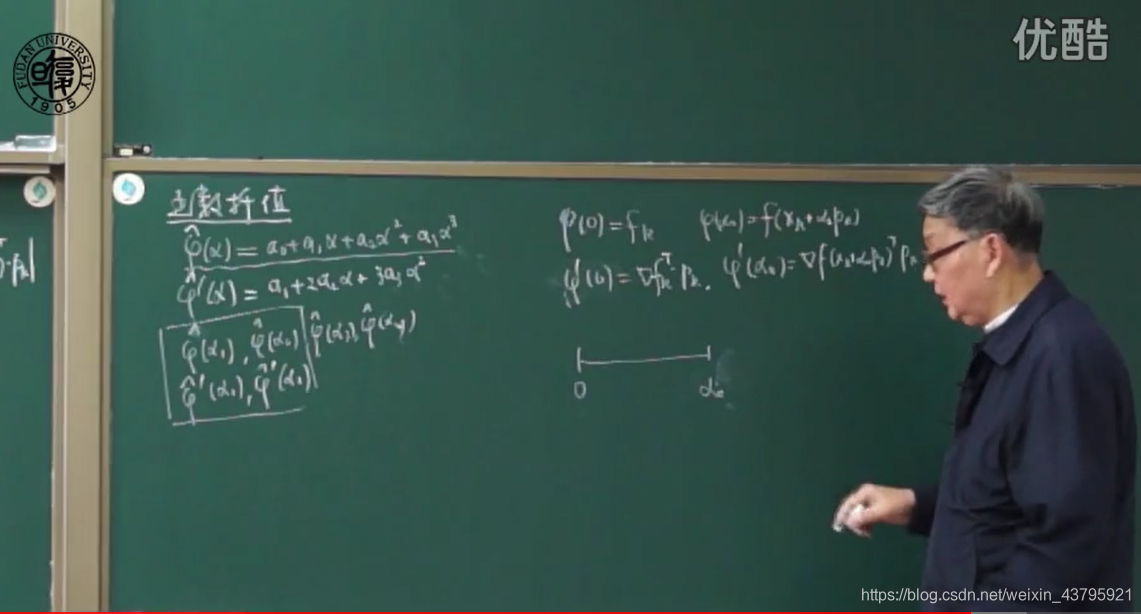 FUDAN UNIVERSITY
1905
优酷
函数插值
φ̂(α) = a₀+a₁α+a₂α²+a₃α³
φ̂'(α) = a₁+2a₂α+3a₃α²
φ̂(α₁), φ̂(α₂), φ̂(α₃), φ̂(α₄)
φ̂'(α₁), φ̂'(α₂)
φ(0)=fₖ φ(α₀)=f(xₖ+α₀pₖ)
φ'(0)=∇fₖᵀpₖ. φ'(α₀)=∇f(xₖ+αpₖ)ᵀpₖ
0 α₀
https://blog.csdn.net/weixin_43795921